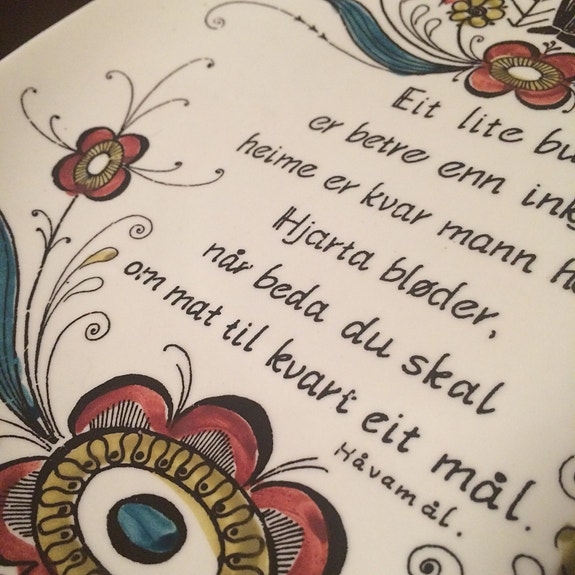 Eit lite bu
er betre enn
heime er kvar mann
Hjarta bløder,
når beda du skal
om mat til kvart eit mål.
Håvamål.